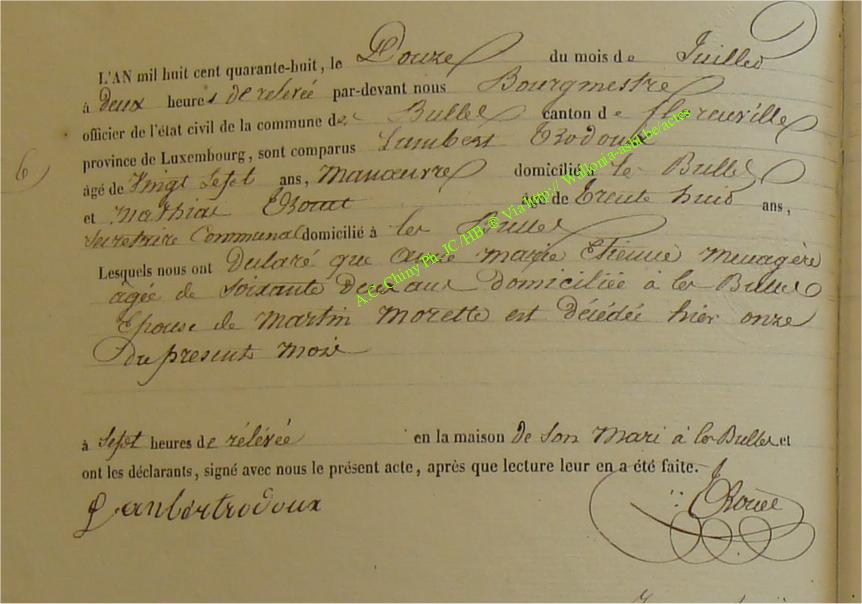 L'AN mil huit cent quarante-huit, le Douze du mois de Juillet
à deux heures de relevée par-devant nous Bourgmestre
officier de l'état civil de la commune des Bulles canton de florenville
province de Luxembourg, sont comparus Lambert Trodoux
âgé de Vingt Sept ans, Manœuvre domicilié à les Bulles
et Mathias âgé de trente huit ans,
Secretaire Communal domicilié à les Bulles
Lesquels nous ont Déclaré que Anne marie Etienne menagère
agée de Soixante Deux ans domiciliée à les Bulles
Epouse de Martin Morette est décédée hier onze
du present mois
à Sept heures de rélévée en la maison de son mari à les Bulles et
ont les déclarants, signé avec nous le présent acte, après que lecture leur en a été faite.
Lambertrodoux
6
A.C. Chiny Ph. JC /HB ® Via http:// Wallonia-asbl.be/actes